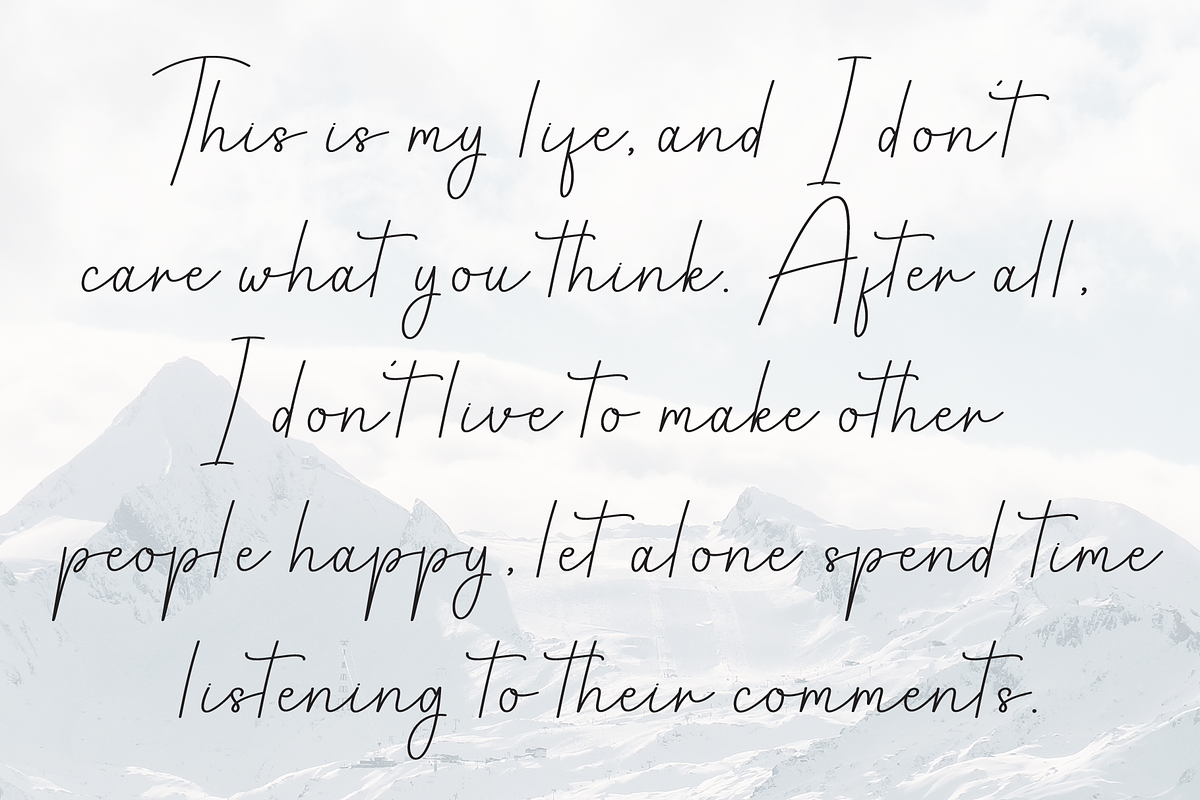 This is my life, and I don't
care what you think. After all,
I don't live to make other
people happy, let alone spend time
listening to their comments.